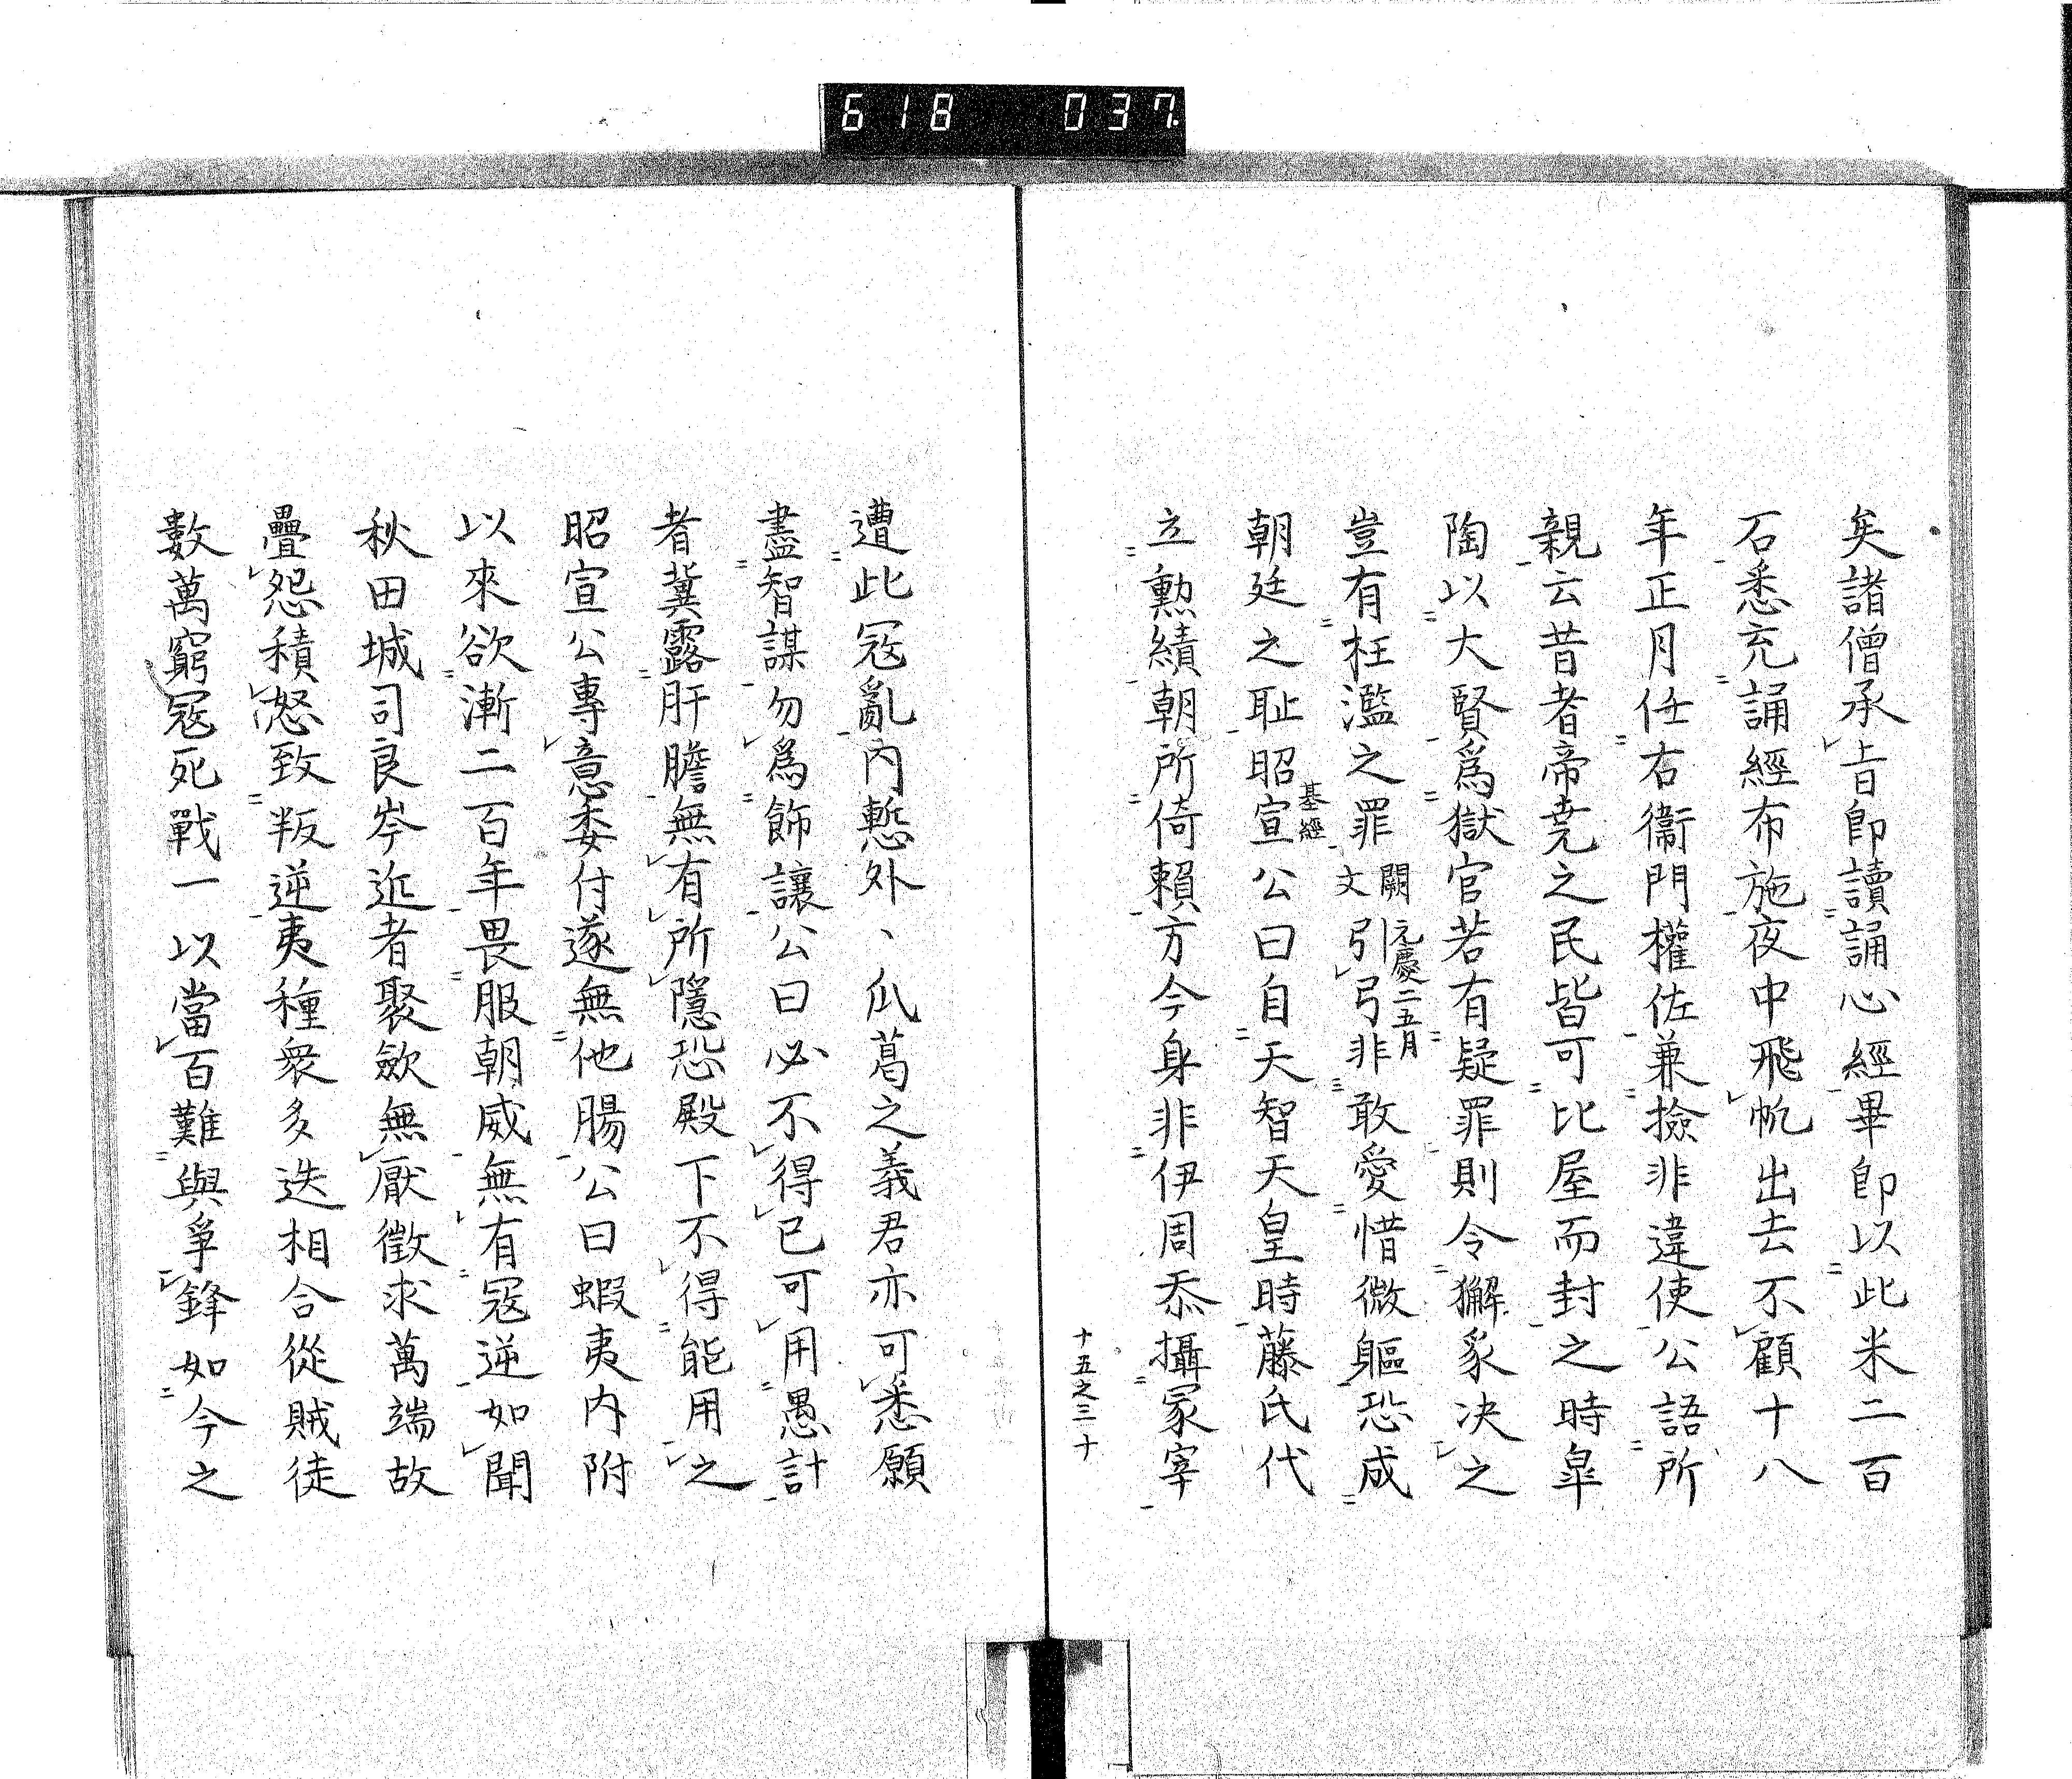 618 037
矣諸僧承旨即讀誦心經畢即以此米二百
石悉充誦經布施夜中飛帆出去不顧十八
年正月任右衞門權佐兼撿非違使公語所
親云昔者帝堯之民皆可比屋而封之時皐
陶以大賢爲獄官若有疑罪則令獬豸决之
豈有枉濫之罪闕文引弓非敢愛惜微軀恐成
元慶二五月
朝廷之耻昭宣公曰自天智天皇時藤氏代
基經
立勲績朝所倚賴方今身非伊周忝攝冢宰
十五之三十
遭此寇亂内慙外、瓜葛之義君亦可悉願
盡智謀勿爲飾讓公曰必不得已可用愚計
者冀露肝膽無有所隱恐殿下不得能用之
昭宣公專意委付遂無他腸公曰蝦夷内附
以來欲漸二百年畏服朝威無有寇逆如聞
秋田城司良岑近者聚歛無厭徵求萬端故
疊怨積怒致叛逆夷種衆多迭相合從賊徒
數萬窮寇死戰一以當百難與爭鋒如今之